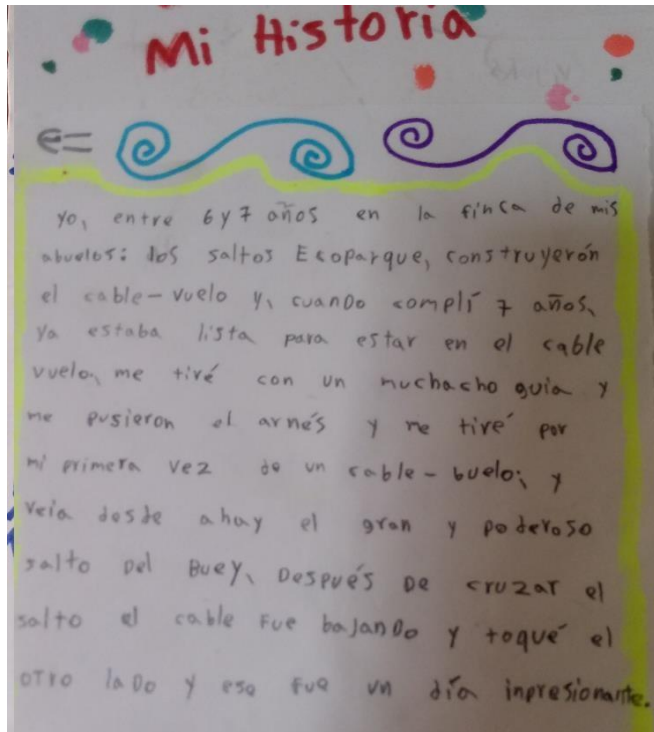 Mi Historia
yo, entre 6 y 7 años en la finca de mis
abuelos: los saltos Ecoparque, construyerón
el cable-vuelo y, cuanDo complí 7 años,
ya estaba lista para estar en el cable
vuelo, me tiré con un muchacho guia y
me pusieron el arnés y me tiré por
mi primera vez de un cable-buelo; y
veia desde ahay el gran y poderoso
salto Del Buey, Después De cruzar el
salto el cable Fue bajanDo y toqué el
otro laDo y ese fue un día inpresionante.